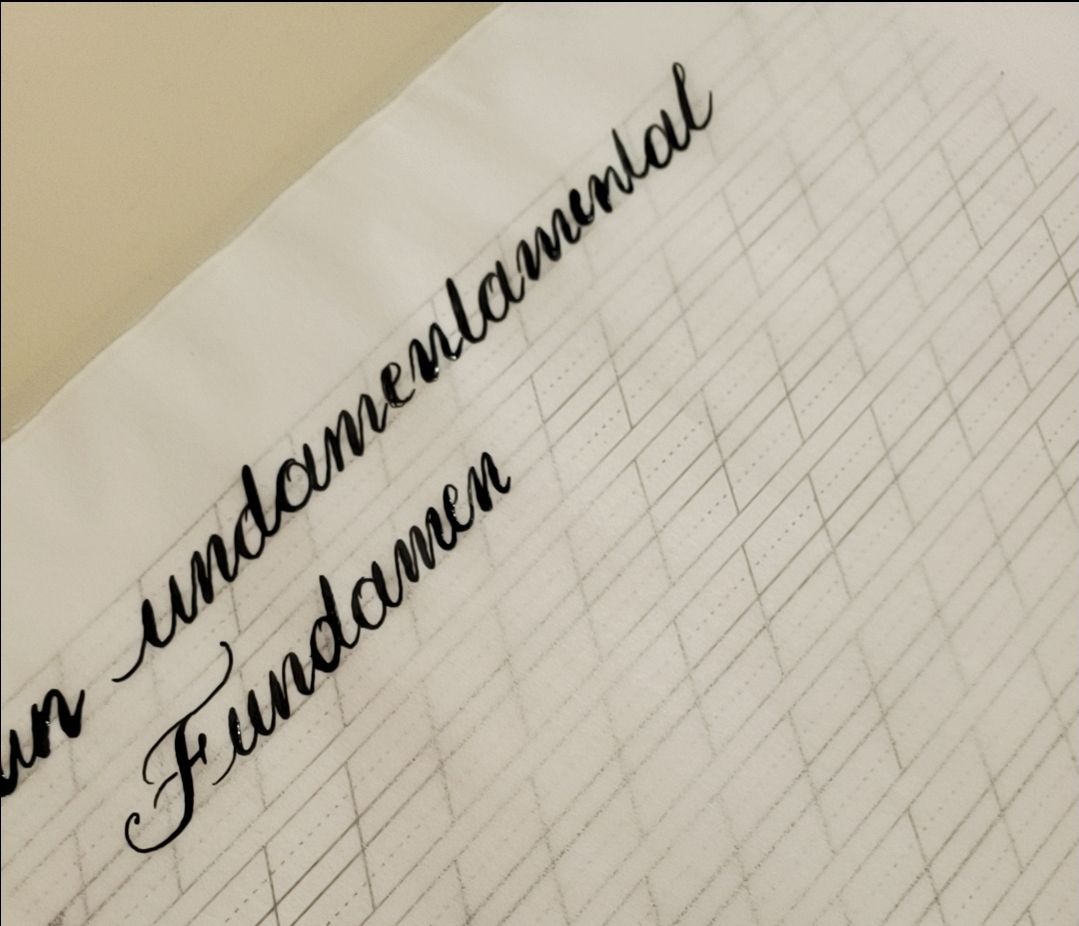 un undamentamental
Fundamen